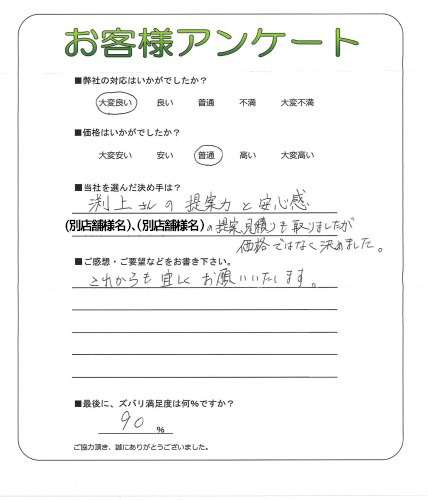 お客様アンケート
■弊社の対応はいかがでしたか？
大変良い 良い 普通 不満 大変不満
■価格はいかがでしたか？
大変安い 安い 普通 高い 大変高い
■当社を選んだ決め手は？
渕上さんの提案力と安心感
(別店舗様名)、(別店舗様名)の提案見積りも取りましたが
価格ではなく決めました。
■ご感想・ご要望などをお書き下さい。
これからも宜しくお願いいたします。
■最後に、ズバリ満足度は何%ですか？
90 %
ご協力頂き、誠にありがとうございました。